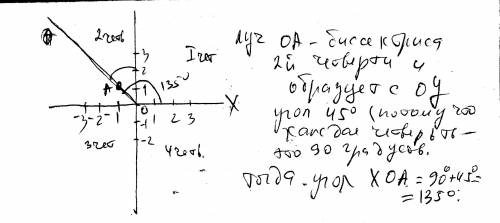 2 четв
I чет
3
2
1
135°
A
O
X
-3 -2 -1
1 2 3
-1
-2
3 четв
4 четв.
Луч ОА - биссектриса
2й четверти и
образует с ОУ
угол 45° (потому что
каждая четверть -
это 90 градусов.
тогда угол ХОА = 90°+45°=
= 135°.